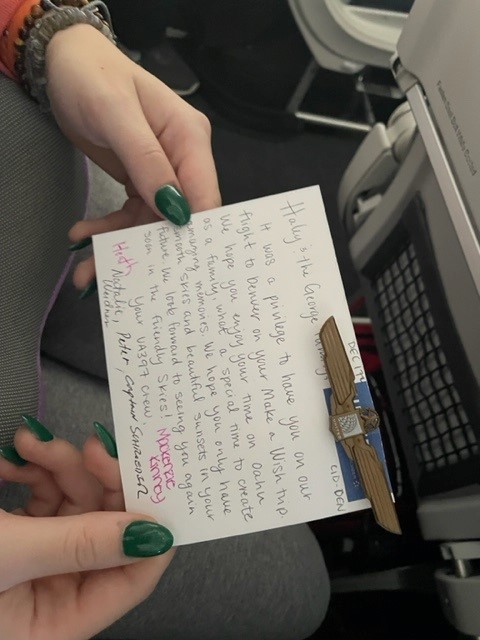 DEC 17th
CID-DEN
Haley & the George Family,
It was a privilege to have you on our
flight to Denver on your Make a Wish trip.
We hope you enjoy your time on Oahu
as a family, what a special time to create
amazing memories. We hope you only have
smooth skies and beautiful sunsets in your
future. We look forward to seeing you again
soon in the friendly skies! Mackenzie
Kinney
Your UA397 crew,
Heth Natalie, Peter, Captain